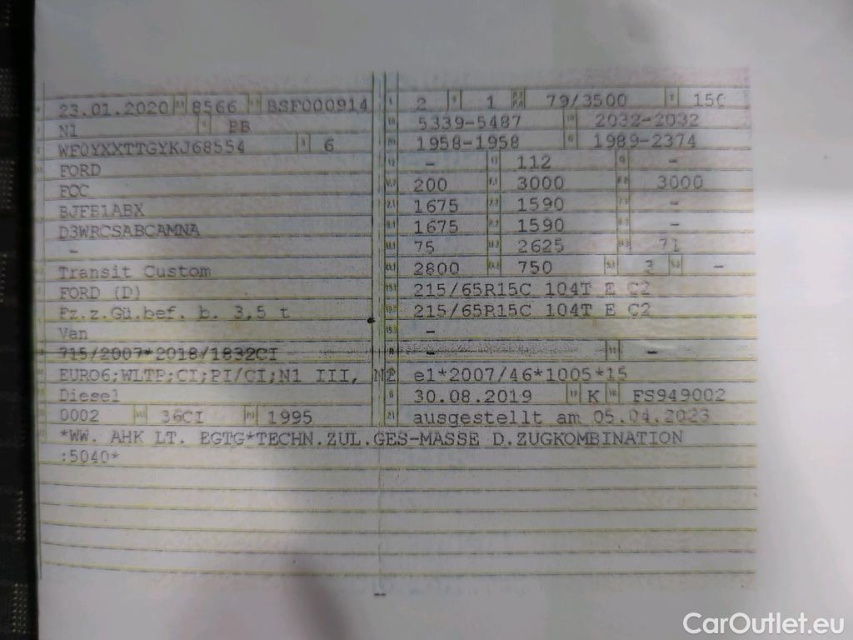 23.01.2020 8566 BSF000914
N1 BB
WF0YXXTTGYKJ68554 6
FORD
FCC
BJFE1ABX
D3WRCSABCAMNA
-
Transit Custom
FORD (D)
Fz.z.Gü.bef. b. 3,5 t
Van
715/2007*2018/1832CI
EURO6;WLTP;CI;PI/CI;N1 III, N2
Diesel
0002 36CI 1995
2 1 79/3500 150
5339-5487 2032-2032
1958-1958 1989-2374
- 112 -
200 3000 3000
1675 1590 -
1675 1590 -
75 2625 71
2800 750 3 -
215/65R15C 104T E C2
215/65R15C 104T E C2
-
- -
e1*2007/46*1005*15
30.08.2019 K FS949002
ausgestellt am 05.04.2023
*WW. AHK LT. EGTG*TECHN.ZUL.GES-MASSE D.ZUGKOMBINATION
:5040*
CarOutlet.eu